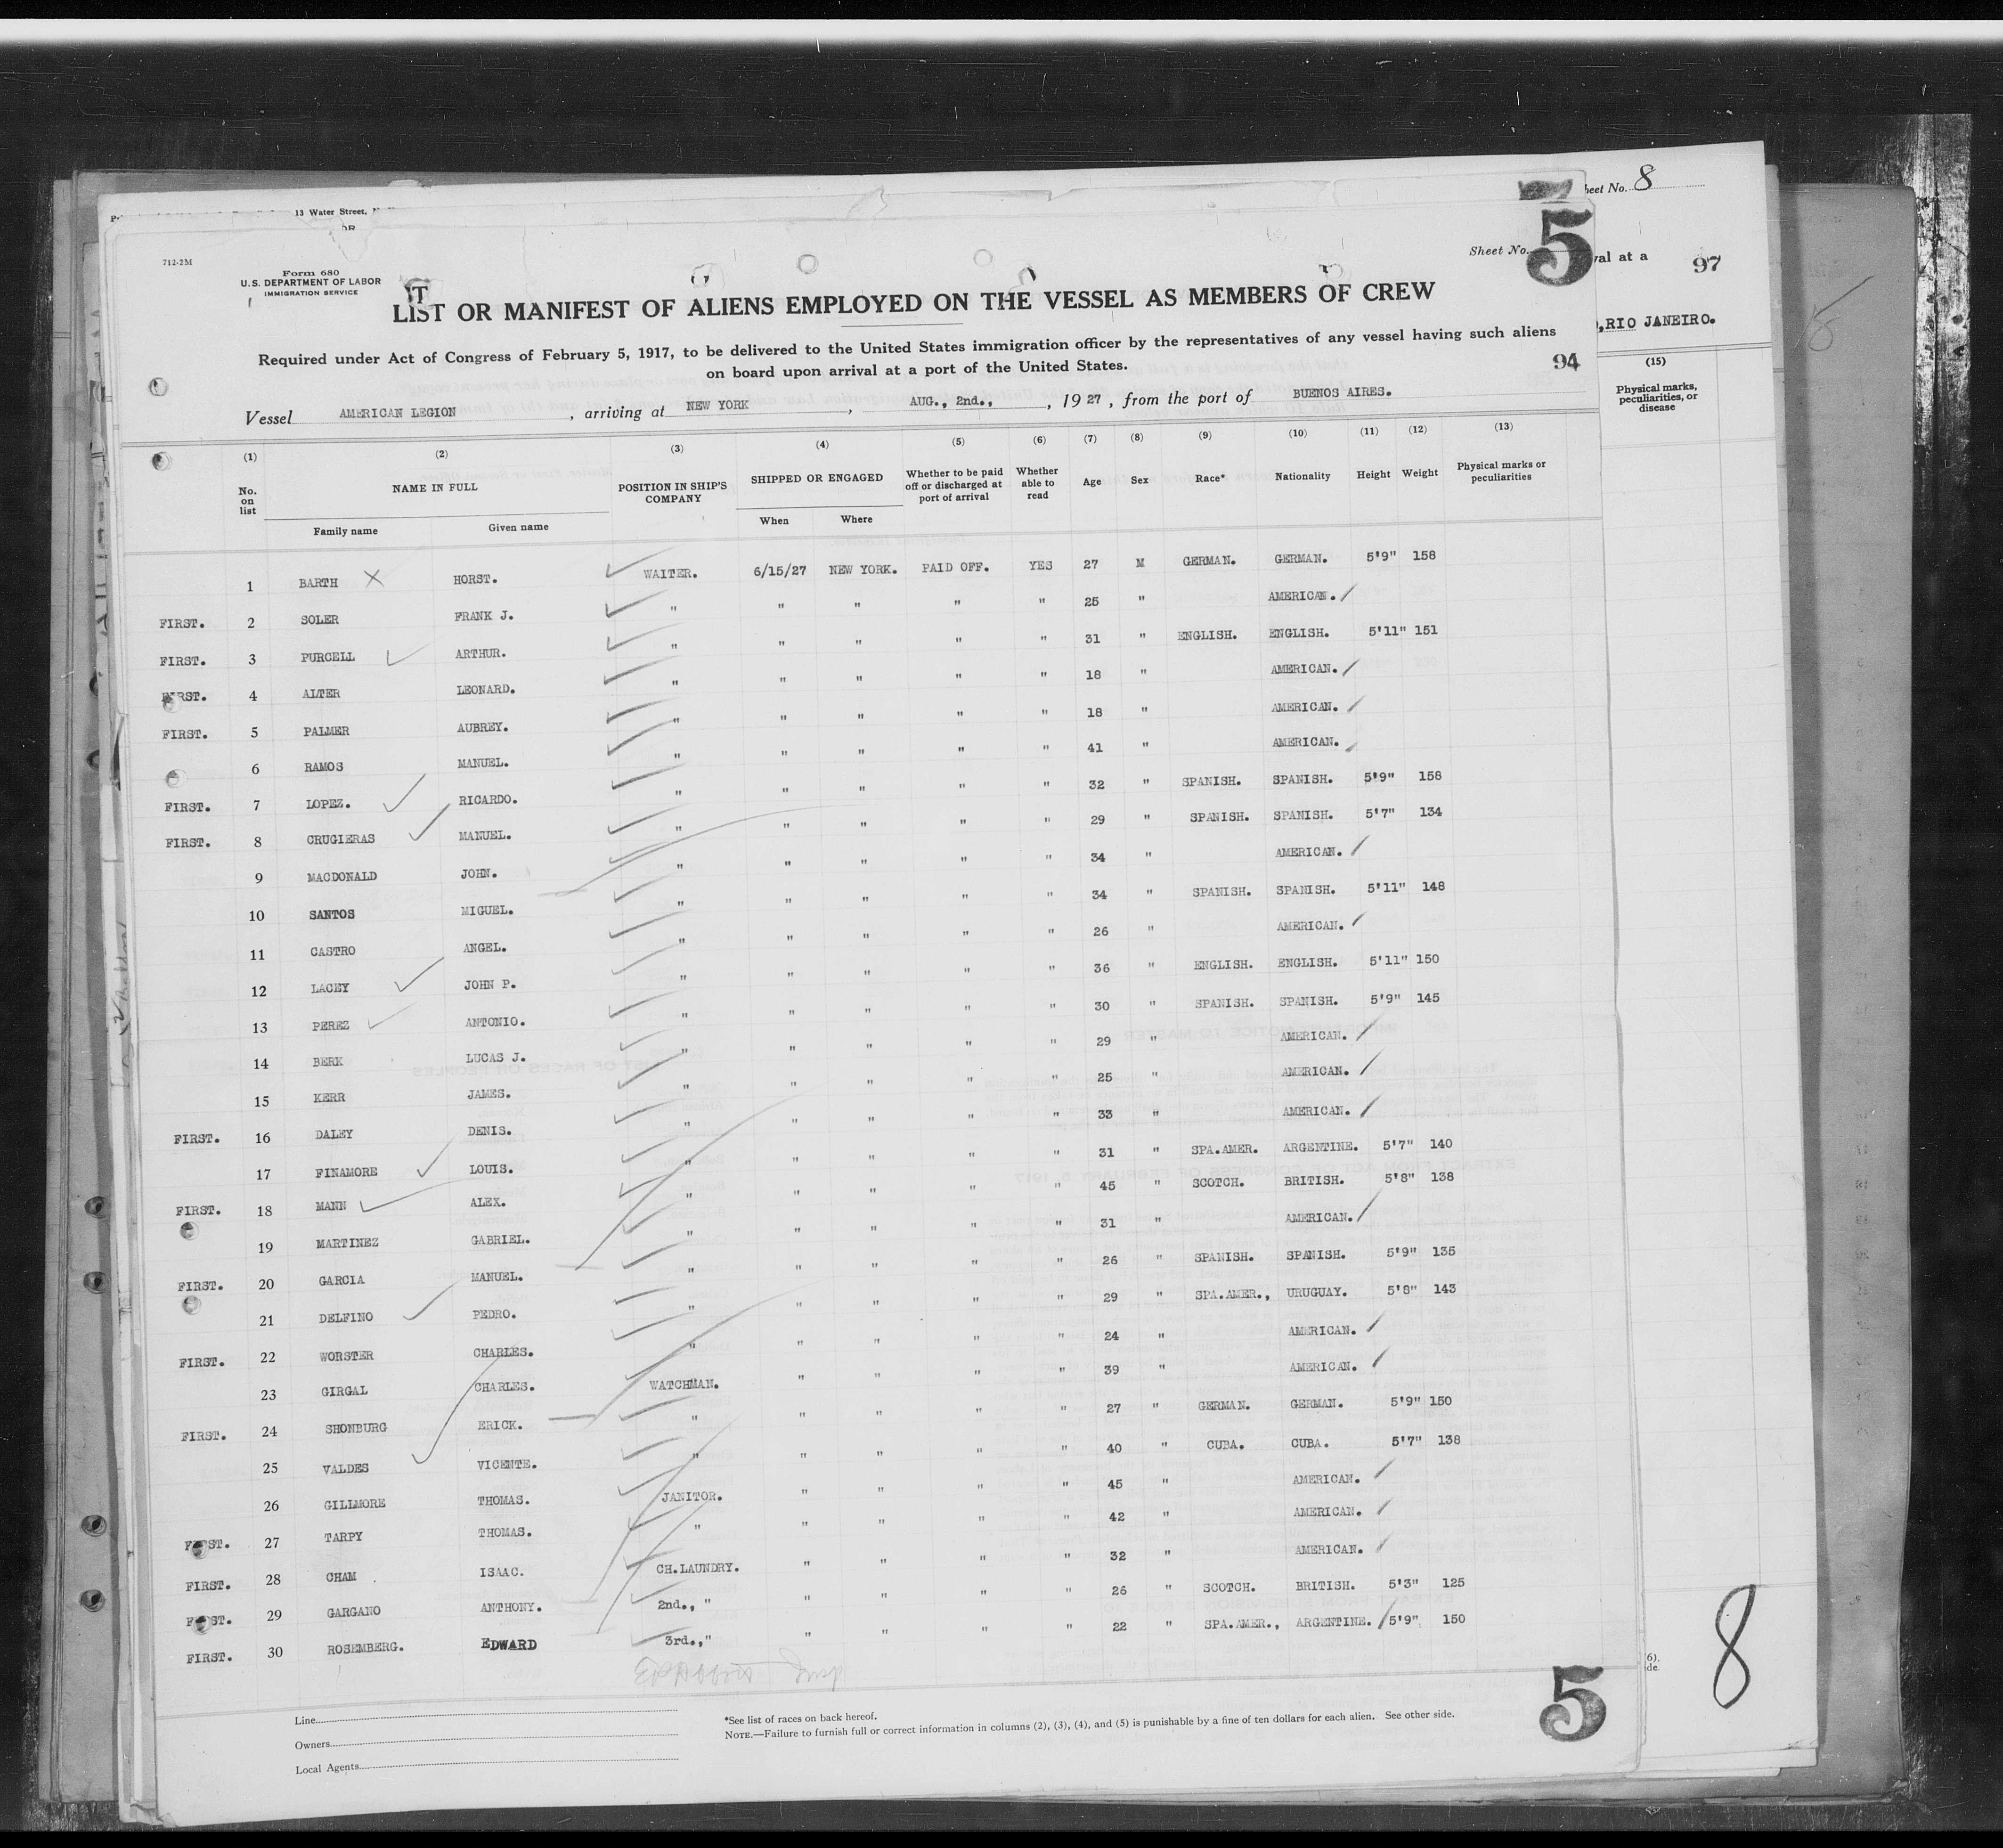 Sheet No. 8
13 Water Street,
OR
Sheet No. 5
val at a
97
712-2M
Form 680
U.S. DEPARTMENT OF LABOR
IMMIGRATION SERVICE
LIST OR MANIFEST OF ALIENS EMPLOYED ON THE VESSEL AS MEMBERS OF CREW
,RIO JANEIRO.
Required under Act of Congress of February 5, 1917, to be delivered to the United States immigration officer by the representatives of any vessel having such aliens
on board upon arrival at a port of the United States.
94
(15)
Physical marks,
peculiarities, or
disease
Vessel AMERICAN LEGION , arriving at NEW YORK , AUG., 2nd., , 1927, from the port of BUENOS AIRES.
(1) (2) (3) (4) (5) (6) (7) (8) (9) (10) (11) (12) (13)
No. on list NAME IN FULL POSITION IN SHIP'S COMPANY SHIPPED OR ENGAGED Whether to be paid off or discharged at port of arrival Whether able to read Age Sex Race* Nationality Height Weight Physical marks or peculiarities
Family name Given name When Where
1 BARTH X HORST. WAITER. 6/15/27 NEW YORK. PAID OFF. YES 27 M GERMAN. GERMAN. 5'9" 158
FIRST. 2 SOLER FRANK J. " " " " " 25 " AMERICAN.
FIRST. 3 PURCELL ARTHUR. " " " " " 31 " ENGLISH. ENGLISH. 5'11" 151
FIRST. 4 ALTER LEONARD. " " " " " 18 " AMERICAN.
FIRST. 5 PALMER AUBREY. " " " " " 18 " AMERICAN.
6 RAMOS MANUEL. " " " " " 41 " AMERICAN.
FIRST. 7 LOPEZ. RICARDO. " " " " " 32 " SPANISH. SPANISH. 5'9" 158
FIRST. 8 CRUGIERAS MANUEL. " " " " " 29 " SPANISH. SPANISH. 5'7" 134
9 MACDONALD JOHN. " " " " " 34 " AMERICAN.
10 SANTOS MIGUEL. " " " " " 34 " SPANISH. SPANISH. 5'11" 148
11 CASTRO ANGEL. " " " " " 26 " AMERICAN.
12 LACEY JOHN P. " " " " " 36 " ENGLISH. ENGLISH. 5'11" 150
13 PEREZ ANTONIO. " " " " " 30 " SPANISH. SPANISH. 5'9" 145
14 BERK LUCAS J. " " " " " 29 " AMERICAN.
15 KERR JAMES. " " " " " 25 " AMERICAN.
FIRST. 16 DALEY DENIS. " " " " " 33 " AMERICAN.
17 FINAMORE LOUIS. " " " " " 31 " SPA.AMER. ARGENTINE. 5'7" 140
FIRST. 18 MANN ALEX. " " " " " 45 " SCOTCH. BRITISH. 5'8" 138
19 MARTINEZ GABRIEL. " " " " " 31 " AMERICAN.
FIRST. 20 GARCIA MANUEL. " " " " " 26 " SPANISH. SPANISH. 5'9" 135
21 DELFINO PEDRO. " " " " " 29 " SPA.AMER., URUGUAY. 5'8" 143
FIRST. 22 WORSTER CHARLES. " " " " " 24 " AMERICAN.
23 GIRGAL CHARLES. WATCHMAN. " " " " 39 " AMERICAN.
FIRST. 24 SHONBURG ERICK. " " " " " 27 " GERMAN. GERMAN. 5'9" 150
25 VALDES VICENTE. " " " " " 40 " CUBA. CUBA. 5'7" 138
26 GILLMORE THOMAS. JANITOR. " " " " 45 " AMERICAN.
FIRST. 27 TARPY THOMAS. " " " " " 42 " AMERICAN.
FIRST. 28 CHAM ISAAC. CH.LAUNDRY. " " " " 32 " AMERICAN.
FIRST. 29 GARGANO ANTHONY. 2nd., " " " " " 26 " SCOTCH. BRITISH. 5'3" 125
FIRST. 30 ROSEMBERG. EDWARD 3rd.," " " " " 22 " SPA.AMER., ARGENTINE. 5'9" 150
Line
Owners
Local Agents
*See list of races on back hereof.
NOTE.—Failure to furnish full or correct information in columns (2), (3), (4), and (5) is punishable by a fine of ten dollars for each alien. See other side.
5
8